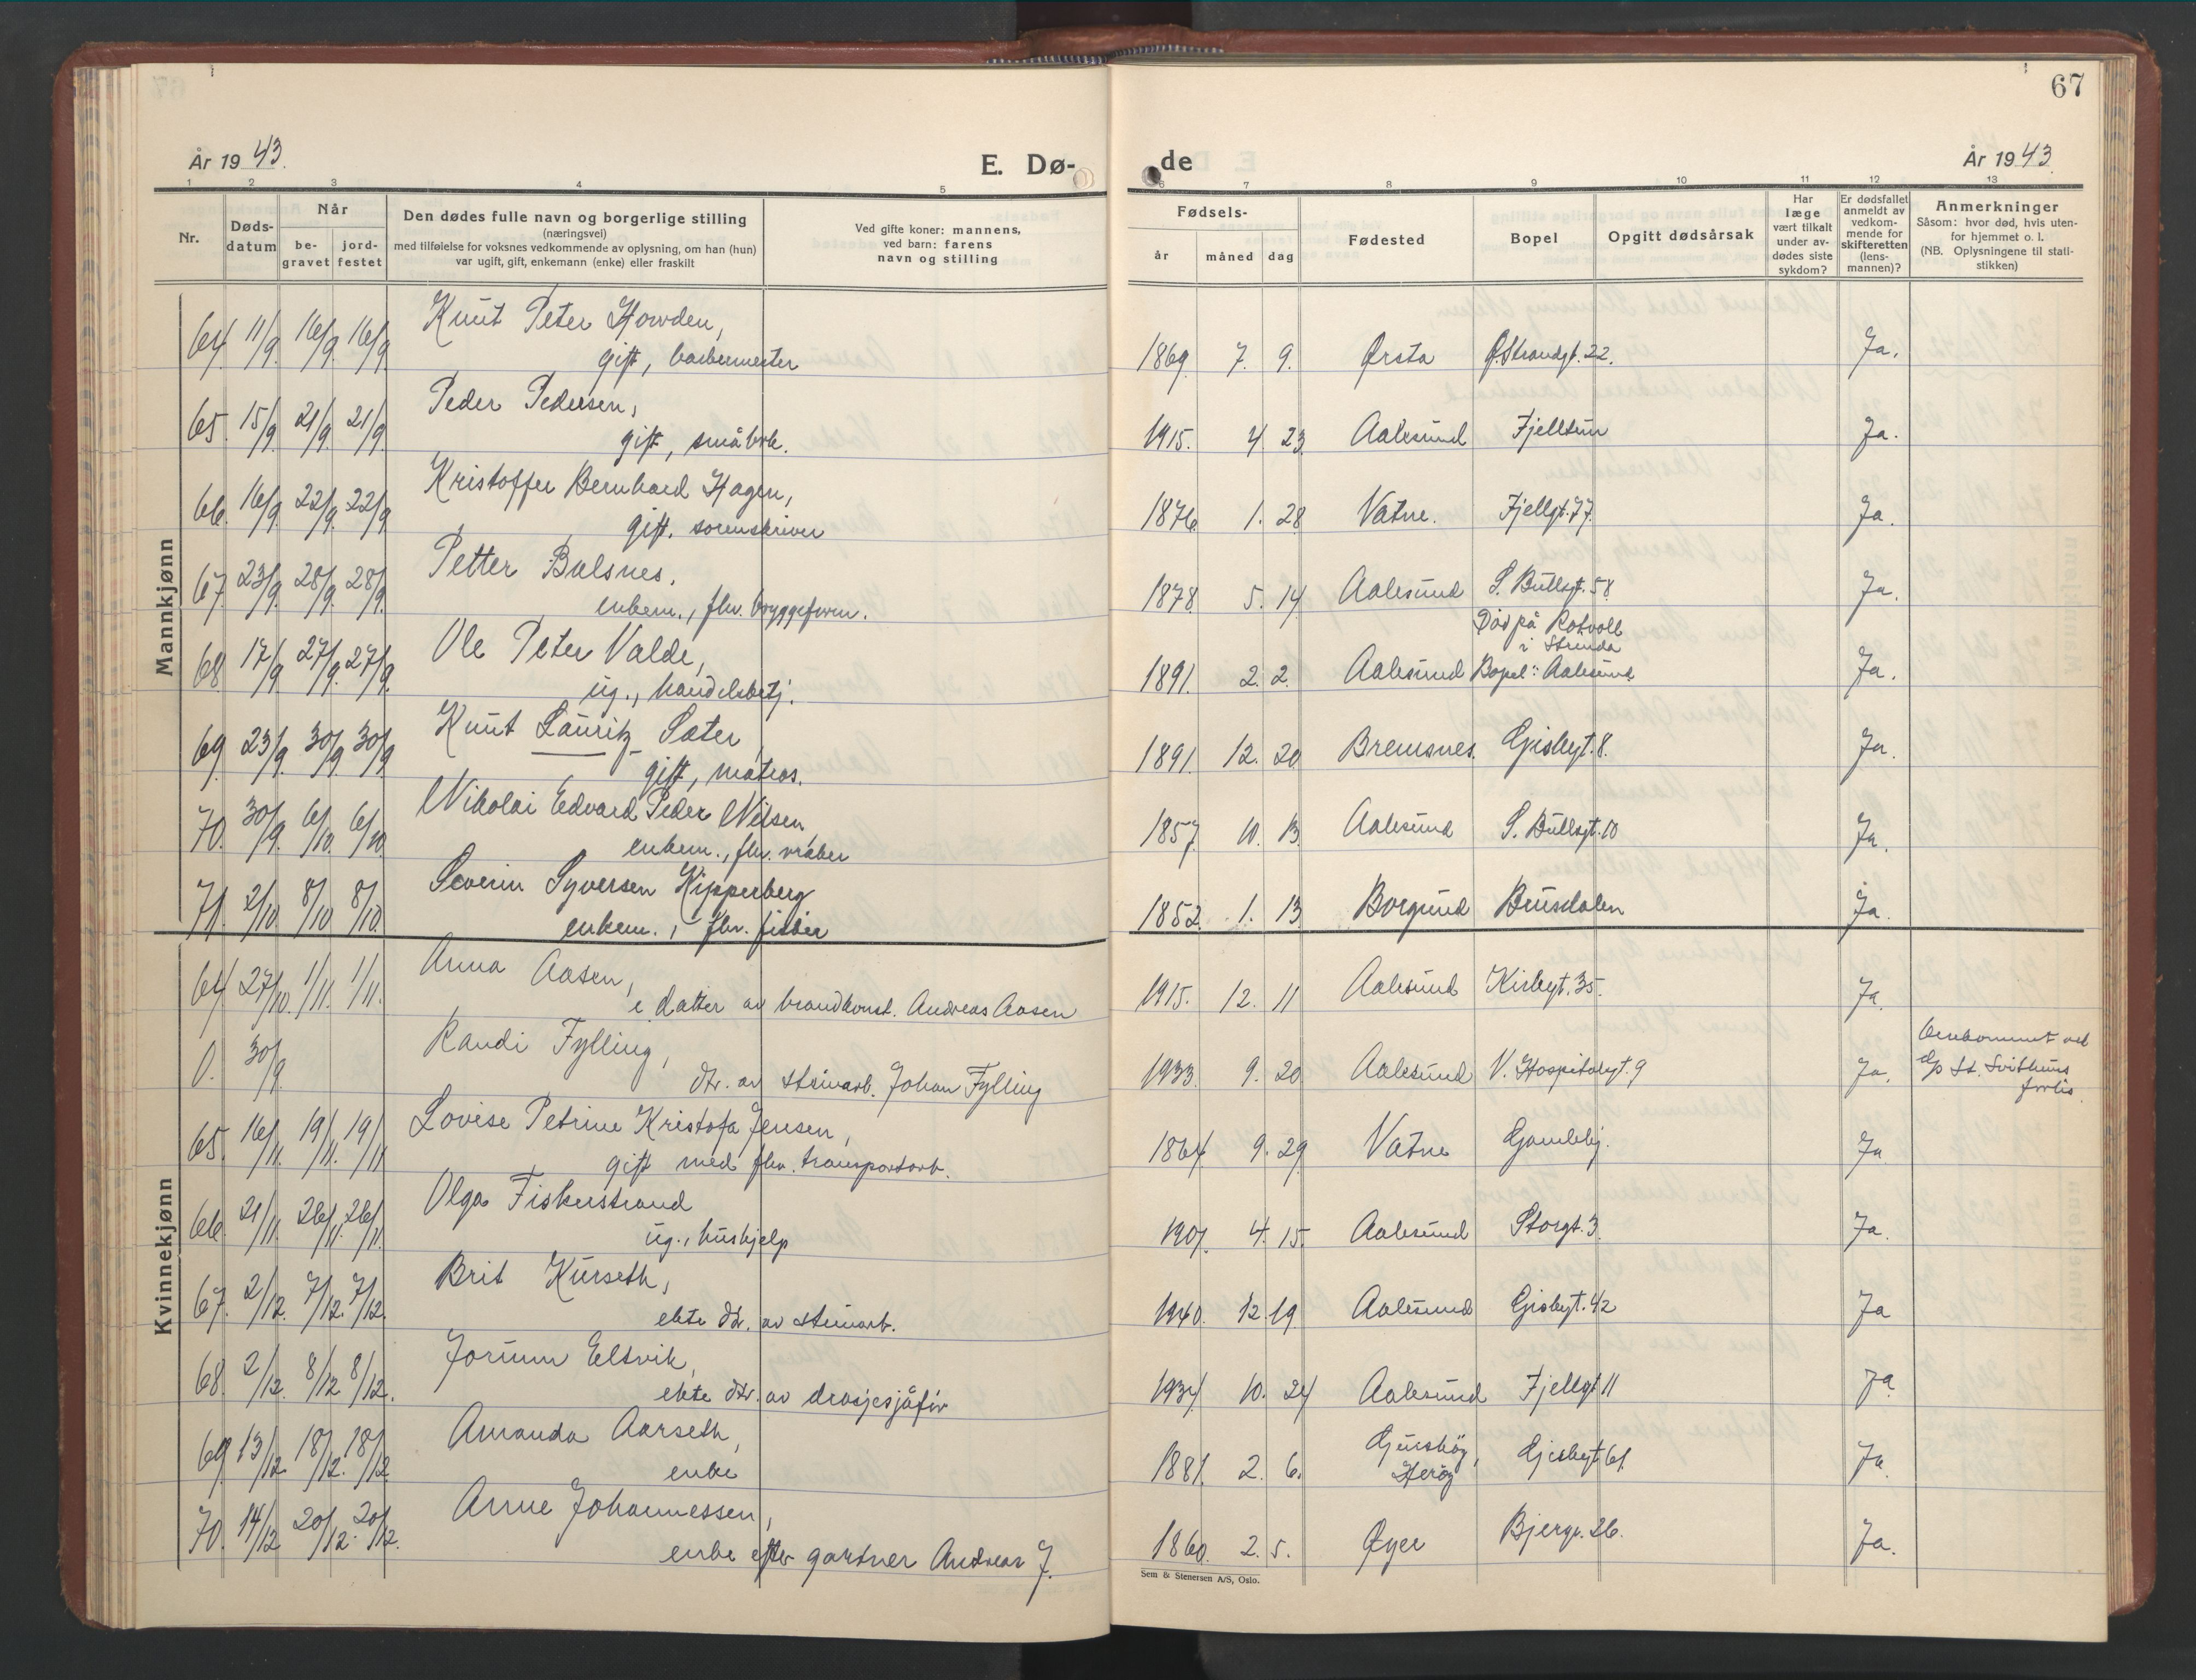 67
År 1943. E. Dø-de År 1943.
1 2 3 4 5 6 7 8 9 10 11 12 13
Nr.
Døds-
datum
Når
be-
gravet
jord-
festet
Den dødes fulle navn og borgerlige stilling
(næringsvei)
med tilføielse for voksnes vedkommende av oplysning, om han (hun)
var ugift, gift, enkemann (enke) eller fraskilt
Ved gifte koner: mannens,
ved barn: farens
navn og stilling
Fødsels-
år måned dag
Fødested
Bopel
Opgitt dødsårsak
Har
læge
vært tilkalt
under av-
dødes siste
sykdom?
Er dødsfallet
anmeldt av
vedkom-
mende for
skifteretten
(lens-
mannen)?
Anmerkninger
Såsom: hvor død, hvis uten-
for hjemmet o. l.
(NB. Oplysningene til stati-
stikken)
Mannkjønn
64 11/9. 16/9. 16/9. Knut Peter Howden, 1869. 7. 9. Ørsta Ø.Strandgt. 22. Ja.
gift, barbermester
65. 15/9. 21/9. 21/9. Peder Pedersen, 1915. 4. 23. Aalesund Fjelltun Ja.
gift, småbrk.
66. 16/9. 22/9. 22/9. Kristoffer Bernhard Hagen, 1876. 1. 28. Vatne. Fjellgt. 77. Ja.
gift, sorenskriver
67. 23/9. 28/9. 28/9. Petter Balsnes, 1878. 5. 14. Aalesund S. Bullsgt. 58. Ja.
enkem., fhv. bryggeform.
Død på Rotvoll
i Strinda
68. 17/9 27/9. 27/9. Ole Peter Valde, 1891. 2. 2. Aalesund Bopel: Aalesund Ja.
ug., handelsbetj.
69. 23/9. 30/9. 30/9 Knut Lauritz Sæter, 1891. 12. 20 Bremsnes. Gisbegt. 8. Ja.
gift, matros.
70. 30/9. 6/10. 6/10. Nikolai Edvard Peder Nilsen, 1857. 10. 13. Aalesund S. Bullsgt. 10 Ja.
enkem., fhv. vraker
71. 2/10. 8/10 8/10. Severin Syversen Kipperberg 1852. 1. 13. Borgund Brusdalen Ja.
enkem., fhv. fisker
Kvinnekjønn
64 27/10. 1/11. 1/11. Anna Aasen, 1915. 12. 11 Aalesund Kirkegt. 35. Ja.
e datter av brandkonst. Andreas Aasen
0. 30/9. Randi Fylling, 1933. 9. 20 Aalesund V. Hospitalgt. 9 Ja. Omkommet ved
dtr. av steinarb. Johan Fylling
D/p St. Svithuns
forlis.
65. 16/11. 19/11. 19/11 Lovise Petrine Kristofa Jensen, 1864. 9. 29. Vatne Gamlehj. Ja
gift med fhv. transportarb.
66. 21/11. 26/11. 26/11. Olga Fiskerstrand 1907. 4. 15. Aalesund Storgt. 3. Ja.
ug., hushjelp
67. 2/12. 7/12. 7/12. Brit Kurseth, 1940. 12. 19. Aalesund Gisbegt. 42 Ja
ekte dtr. av steinarb.
68. 2/12. 8/12. 8/12. Jorunn Eltvik, 1934. 10. 24 Aalesund Fjellgt 11 Ja
ekte dtr. av drosjesjåfør
69. 13/12. 18/12. 18/12 Amanda Aarseth, 1881. 2. 6. Gjurshög, Herøy Gjisbegt 61. Ja.
enke
70. 14/12 20/12. 20/12. Anne Johannessen, 1860. 2. 5. Øyer Bjergv. 26. Ja.
enke efter gartner Andreas J.
Sem & Stenersen A/S, Oslo.